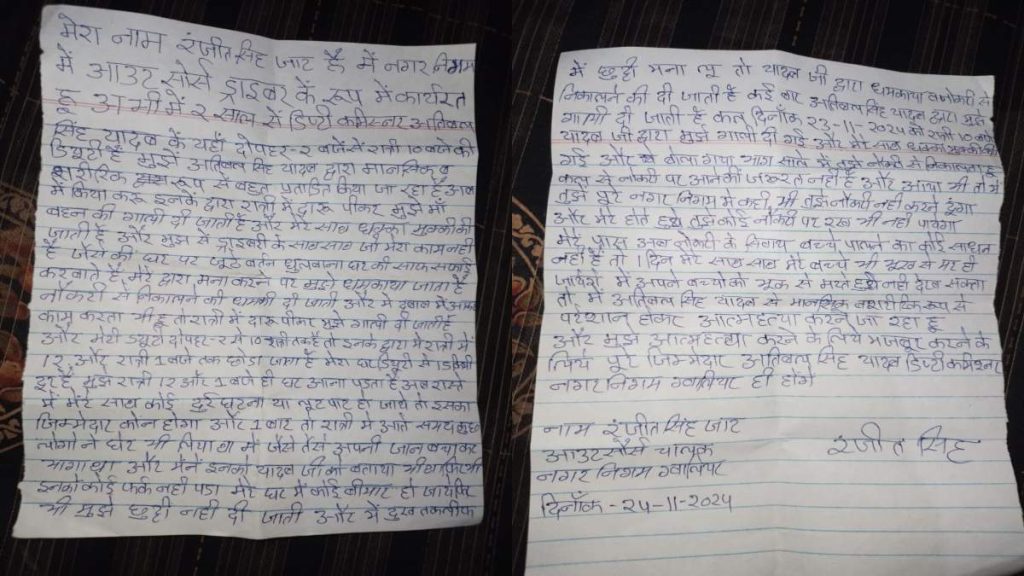 मेरा नाम रंजीत सिंह जाट है में नगर निगम
में आउट सोर्स ड्राइवर के रूप में कार्यरत
हू अभी में २ साल से डिप्टी कमिश्नर अतिबल
सिंह यादव के यहाँ दोपहर २ बजे से रात्री 10 बजे की
ड्यूटी है मुझे अतिबल सिंह यादव द्वारा मानसिक व
शारीरिक रूप से बहुत प्रताडित किया जा रहा है अब
में किया करू इनके द्वारा रात्री में दारू पीकर मुझे माँ
बहन की गाली दी जाती है और मेरे साथ धक्का मुक्की की
जाती है और मुझ से ड्राइवरी के साथ साथ जो मेरा काम नही
है जैसे की घर पर झूठे बर्तन धुलवाना घर की साफ सफाई
करवाते है मेरे द्वारा मना करने पर मुझे धमकाया जाता है
नौकरी से निकालने की धमकी दी जाती और में दबाव में आकर
काम करता भी हू तो रात्री में दारू पीकर मुझे गाली दी जाती है
और मेरी ड्यूटी दोपहर २ से 10 बजे तक है तो इनके द्वारा मे रात्री में
12 और रात्री 1 बजे तक छोडा जाता है मेरा घर ड्यूटी से 15 किमी
दूर है मुझे रात्री 12 और 1 बजे ही घर आना पडता है अब रास्ते
में मेरे साथ कोई दुर्घटना या लूटपाट हो जाये तो इसका
जिम्मेदार कोन होगा और 1 बार तो रात्री में आते समय कुछ
लोगो ने घेर भी लिया था में जैसे तैसे अपनी जान बचा कर
भागा था और मैने इनको यादव जी को बताया भी था फिर भी
इनको कोई फर्क नही पडा मेरे घर में कोई बीमार हो जाये फिर
भी मुझे छुट्टी नही दी जाती और में दुख तकलीफ
में छुट्टी मना लू तो यादव जी द्वारा धमकाया व नौकरी से
निकालने की दी जाती है कई बार अतिबल सिंह यादव द्वारा मुझे
गाली दी जाती है कल दिनाँक 23-11-2024 को रात्री 10 बजे
यादव जी द्वारा मुझे गाली दी गई और मेरे साथ धक्का मुक्की की
गई और ये बोला गया भाग साले में तुझे नौकरी से निकालता हू
कल से नौकरी पर आने की जरूरत नही है और आया भी तो में
तुझे पूरे नगर निगम में कही भी नौकरी नही करने दूंगा
और मेरे होते हुये तुझे कोई नौकरी पर रख भी नही पायेगा
मेरे पास अब नौकरी के सिवाय बच्चे पालने का कोई साधन
नही है तो 1 दिन मेरे साथ साथ मेरे बच्चे भी भूख से मर ही
जायेंगे में अपने बच्चो को भूख से मरते हुये नही देख सकता
तो में अतिबल सिंह यादव से मानसिक व शारीरिक रूप से
परेशान होकर आत्महत्या करने जा रहा हू
और मुझे आत्महत्या करने के लिये मजबूर करने के
लिये पूरे जिम्मेदार अतिबल सिंह यादव डिप्टी कमिश्नर
नगर निगम ग्वालियर ही होगे
नाम रंजीत सिंह जाट
आउटसोर्स चालक रंजीत सिंह
नगर निगम ग्वालियर
दिनाँक - २४-11-२०२४